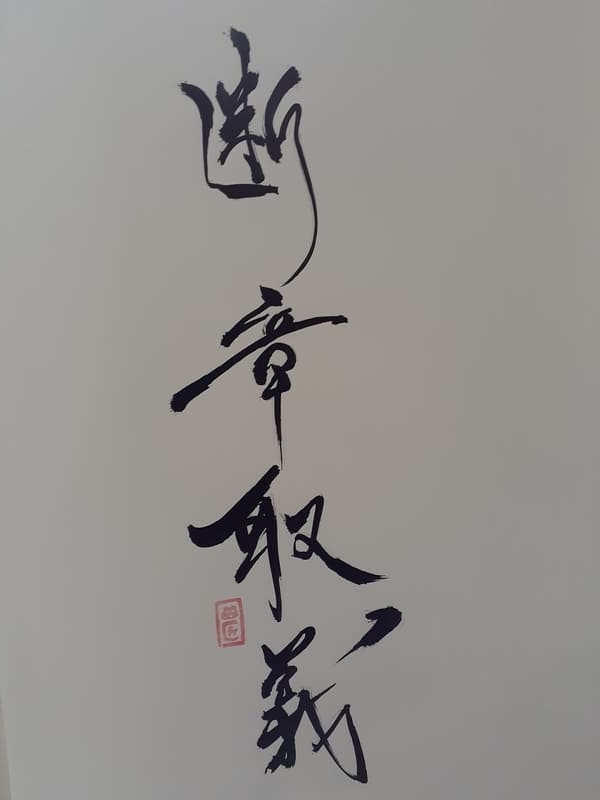 断章取義